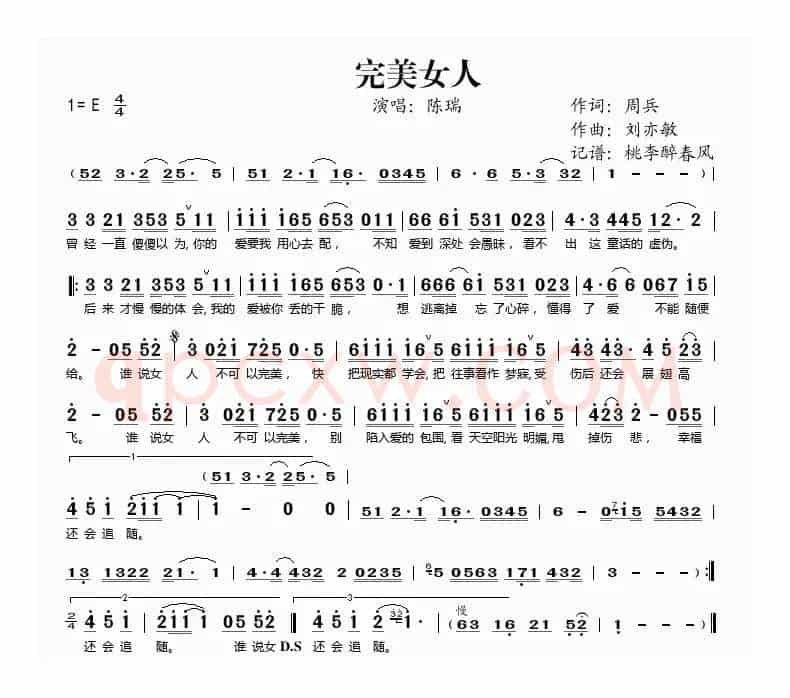 完美女人
1=E 4/4 演唱：陈瑞 作词：周兵
作曲：刘亦敏
记谱：桃李醉春风
(52 3·2 25·5 | 51 2·1 16·0345 | 6·6 5·3 32 | 1 - - )
3 3 21 353 5 11 | 1 1 1 1 65 653 011 | 66 61 531 023 | 4·3 445 12·2
曾经一直傻傻以为,你的 爱要我 用心去配， 不知 爱到深处 会愚昧，看不 出 这 童话的 虚伪。
‖: 3 3 21 353 5 11 | 1111 165 653 0·1 | 666 61 531 023 | 4·6 6 067 15
后来才慢 慢的体 会,我的 爱被你 丢的干 脆， 想 逃离掉 忘了心碎，懂得 了 爱 不能 随便
2 - 05 52 | 3 021 725 0·5 | 6111 16 6 6111 165 | 43 43·4 5 23
给。 谁 说女 人 不可 以完美， 快 把现实都 学会,把 往事看作 梦寐,受 伤后 还会 展 翅 高
2 - 05 52 | 3 021 725 0·5 | 6111 16 6 6111 165 | 423 2 - 055
飞。 谁 说女 人 不可 以完美， 别 陷入爱的 包围,看 天空阳光 明媚,甩 掉伤 悲， 幸福
1
(51 3·2 25·5 |
4 5 1 211 1 | 1 - 0 0 | 51 2·1 16·0345 | 6 - 015 5432 |
还 会 追 随。
13 1322 21·1 | 4·4 432 2 0235 | 5 0563 171 432 | 3 - - ) :‖
2 3 慢
2/4 4 5 1 | 211 1 05 52 ‖ 4 5 1 2 1· (63 16 21 52 | 1 - - )‖
还 会 追 随。 谁 说女 D.S 还 会 追 随。
qpcxw.COM